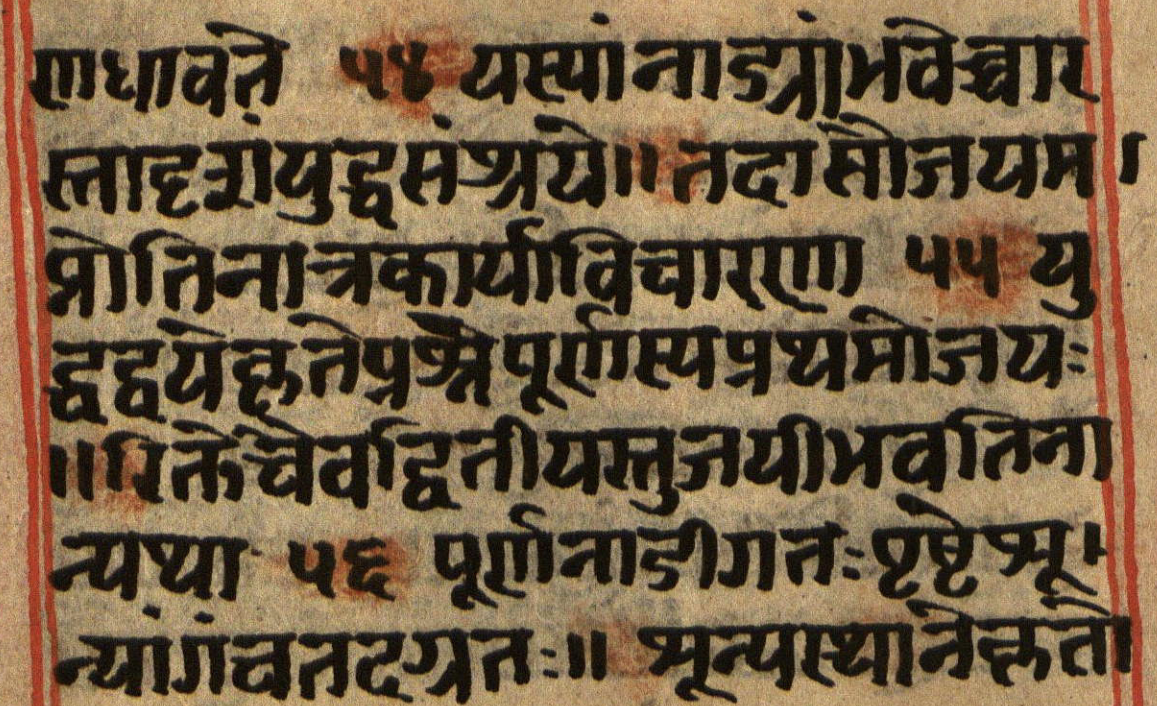 णधावते ५४ यस्यांनाड्यांभवेच्चार
स्तादृशयुद्धसंश्रये॥ तदासौजयम।
प्नोतिनात्रकार्याविचारणा ५५ यु
द्धद्वयेकृतेप्रश्नेपूर्णस्यप्रथमोजयः
॥रिक्तेचैवद्वितीयस्तुजयीभवतिना
न्यथा ५६ पूर्णनाडीगतःपृष्टेशू।
न्यांगंचतदग्रतः॥ शून्यस्थानेकृतो